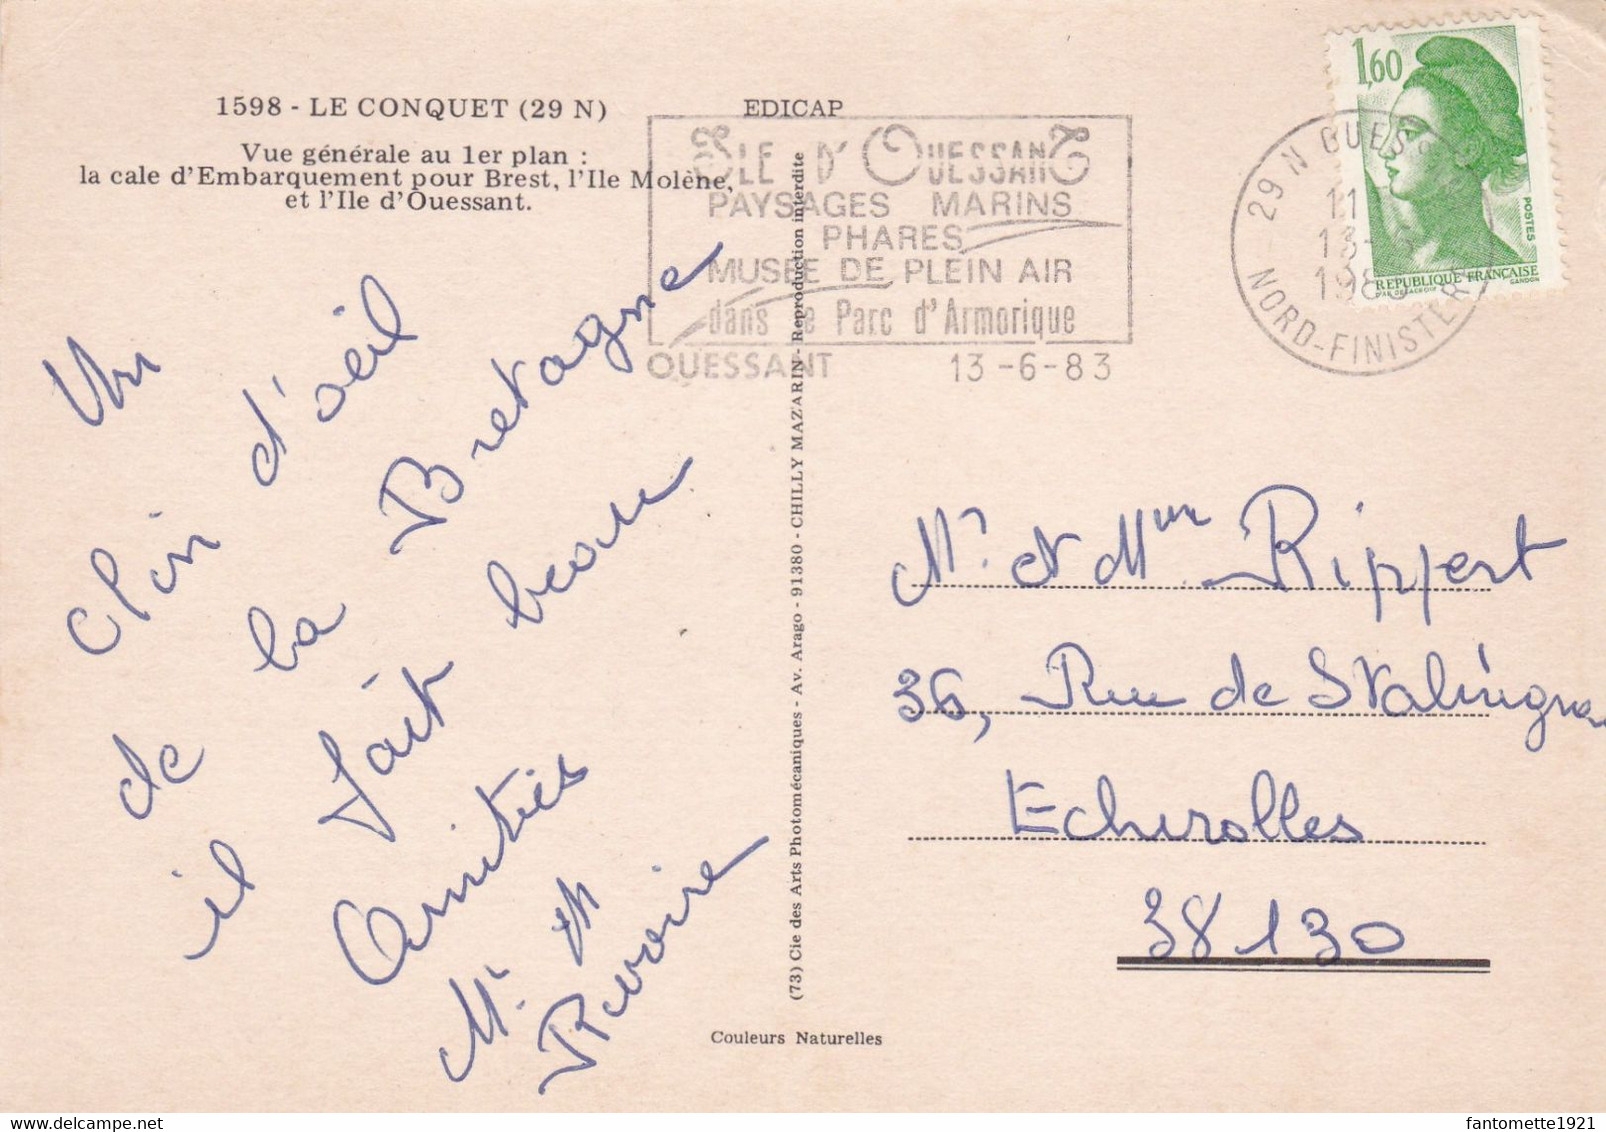 1598 - LE CONQUET (29 N)
EDICAP
Vue générale au 1er plan :
la cale d'Embarquement pour Brest, l'Ile Molène,
et l'Ile d'Ouessant.
ILE D'OUESSANT
PAYSAGES MARINS
PHARES
MUSEE DE PLEIN AIR
dans le Parc d'Armorique
OUESSANT 13-6-83
29 N OUES
11
13-6
198
NORD-FINISTERE
1,60
POSTES
REPUBLIQUE FRANÇAISE
D'AP. DELACROIX GANDON
Un
clin d'oeil
de la Bretagne
il fait beau
Amitiés
Mr
Rivoire
(73) Cie des Arts Photomécaniques - Av. Arago - 91380 - CHILLY MAZARIN - Reproduction interdite
Mr et Mme Rippert
36, Rue de Stalingra
Echirolles
38130
Couleurs Naturelles
fantomette1921